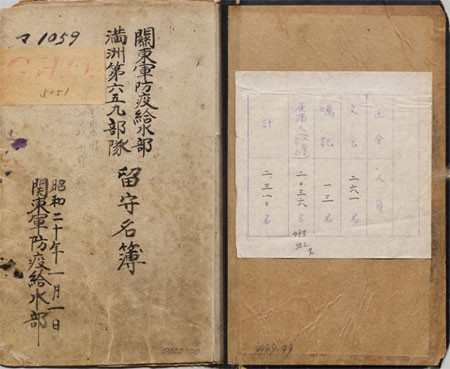 マ1059
關東軍防疫給水部
満洲第六五九部隊
留守名簿
昭和二十年一月一日
関東軍防疫給水部
区分 人員
二六一 名
嘱託 一三 名
二〇三六 名
計 二三一〇 名